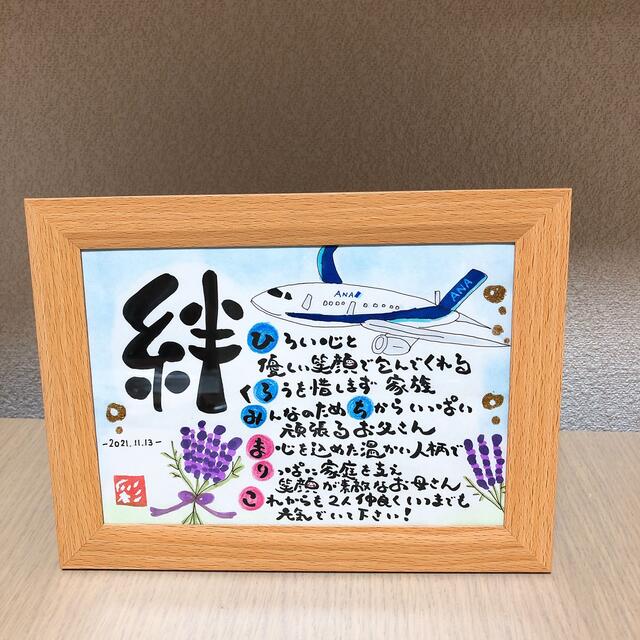 絆
-2021.11.13-
ANA
ANA
ひろい心と
優しい笑顔で包んでくれる
くろうを惜しまず 家族
みんなのため ちからいっぱい
頑張るお父さん
まごころを込めた温かい人柄で
りっぱに家庭を支え
笑顔が素敵なお母さん
これからも2人仲良くいつまでも
元気でいて下さい!